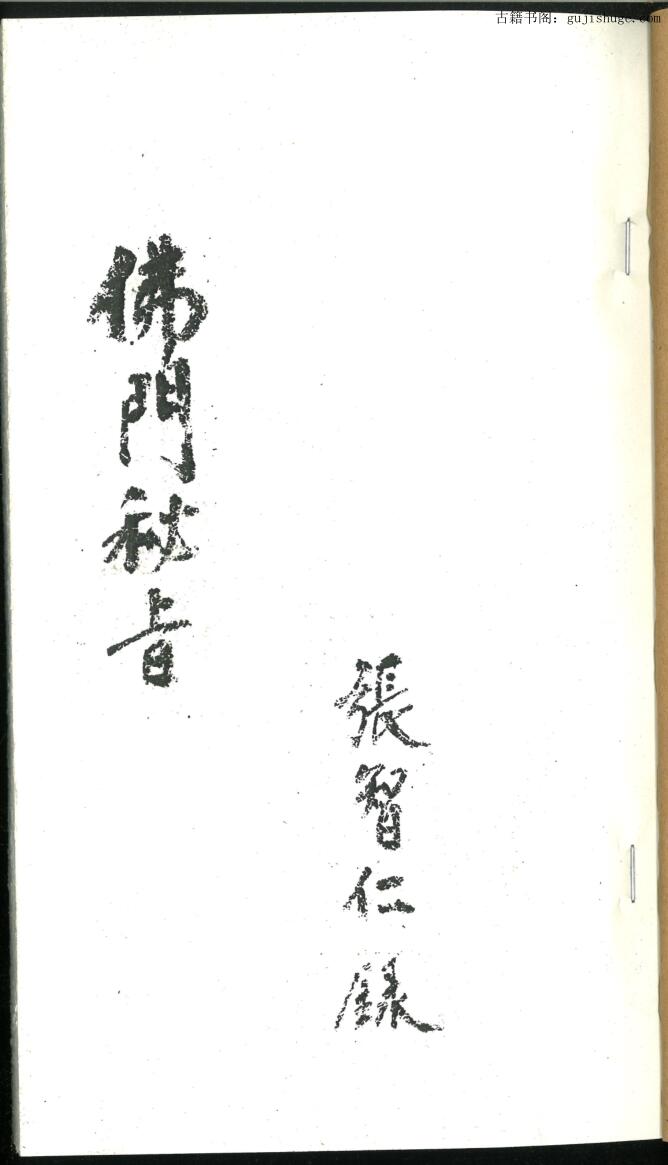 古籍书阁：gujishuge.com
張智仁錄
佛門秘旨